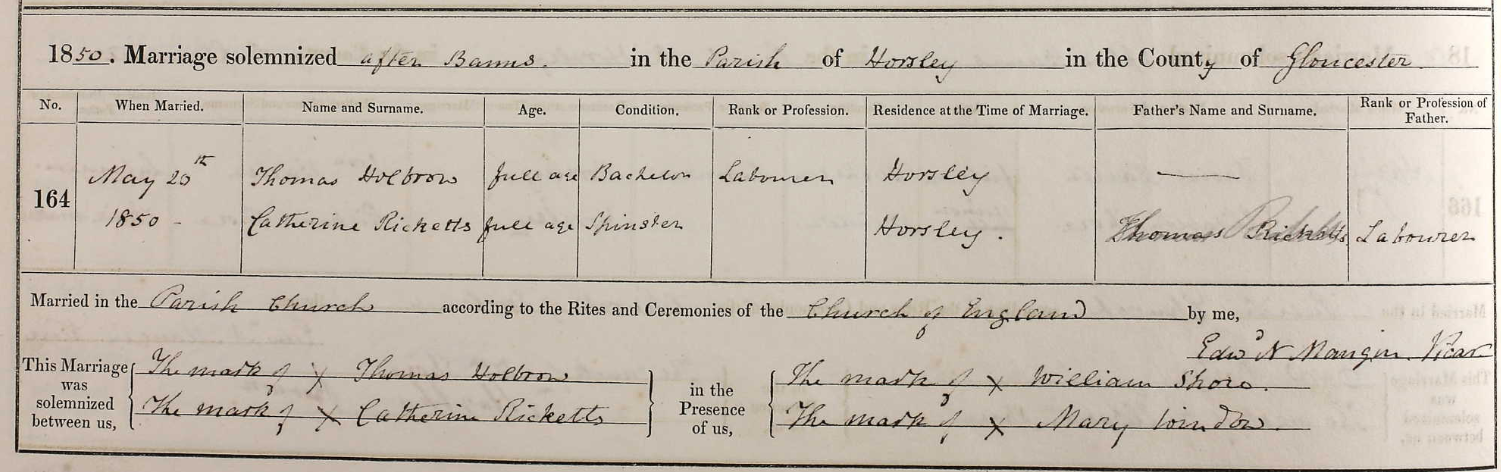 1850. Marriage solemnized after Banns. in the Parish of Horsley in the County of Gloucester
No. When Married. Name and Surname. Age. Condition. Rank or Profession. Residence at the Time of Marriage. Father's Name and Surname. Rank or Profession of Father.
164 May 20th 1850 - Thomas Holbrow full age Bachelor Labourer Horsley ——
Catherine Ricketts full age Spinster Horsley. Thomas Ricketts Labourer
Married in the Parish Church according to the Rites and Ceremonies of the Church of England by me,
Edwd N Mangin Vicar
This Marriage was solemnized between us, The mark of X Thomas Holbrow in the Presence of us, The mark of X William Shore.
The mark of X Catherine Ricketts The mark of X Mary